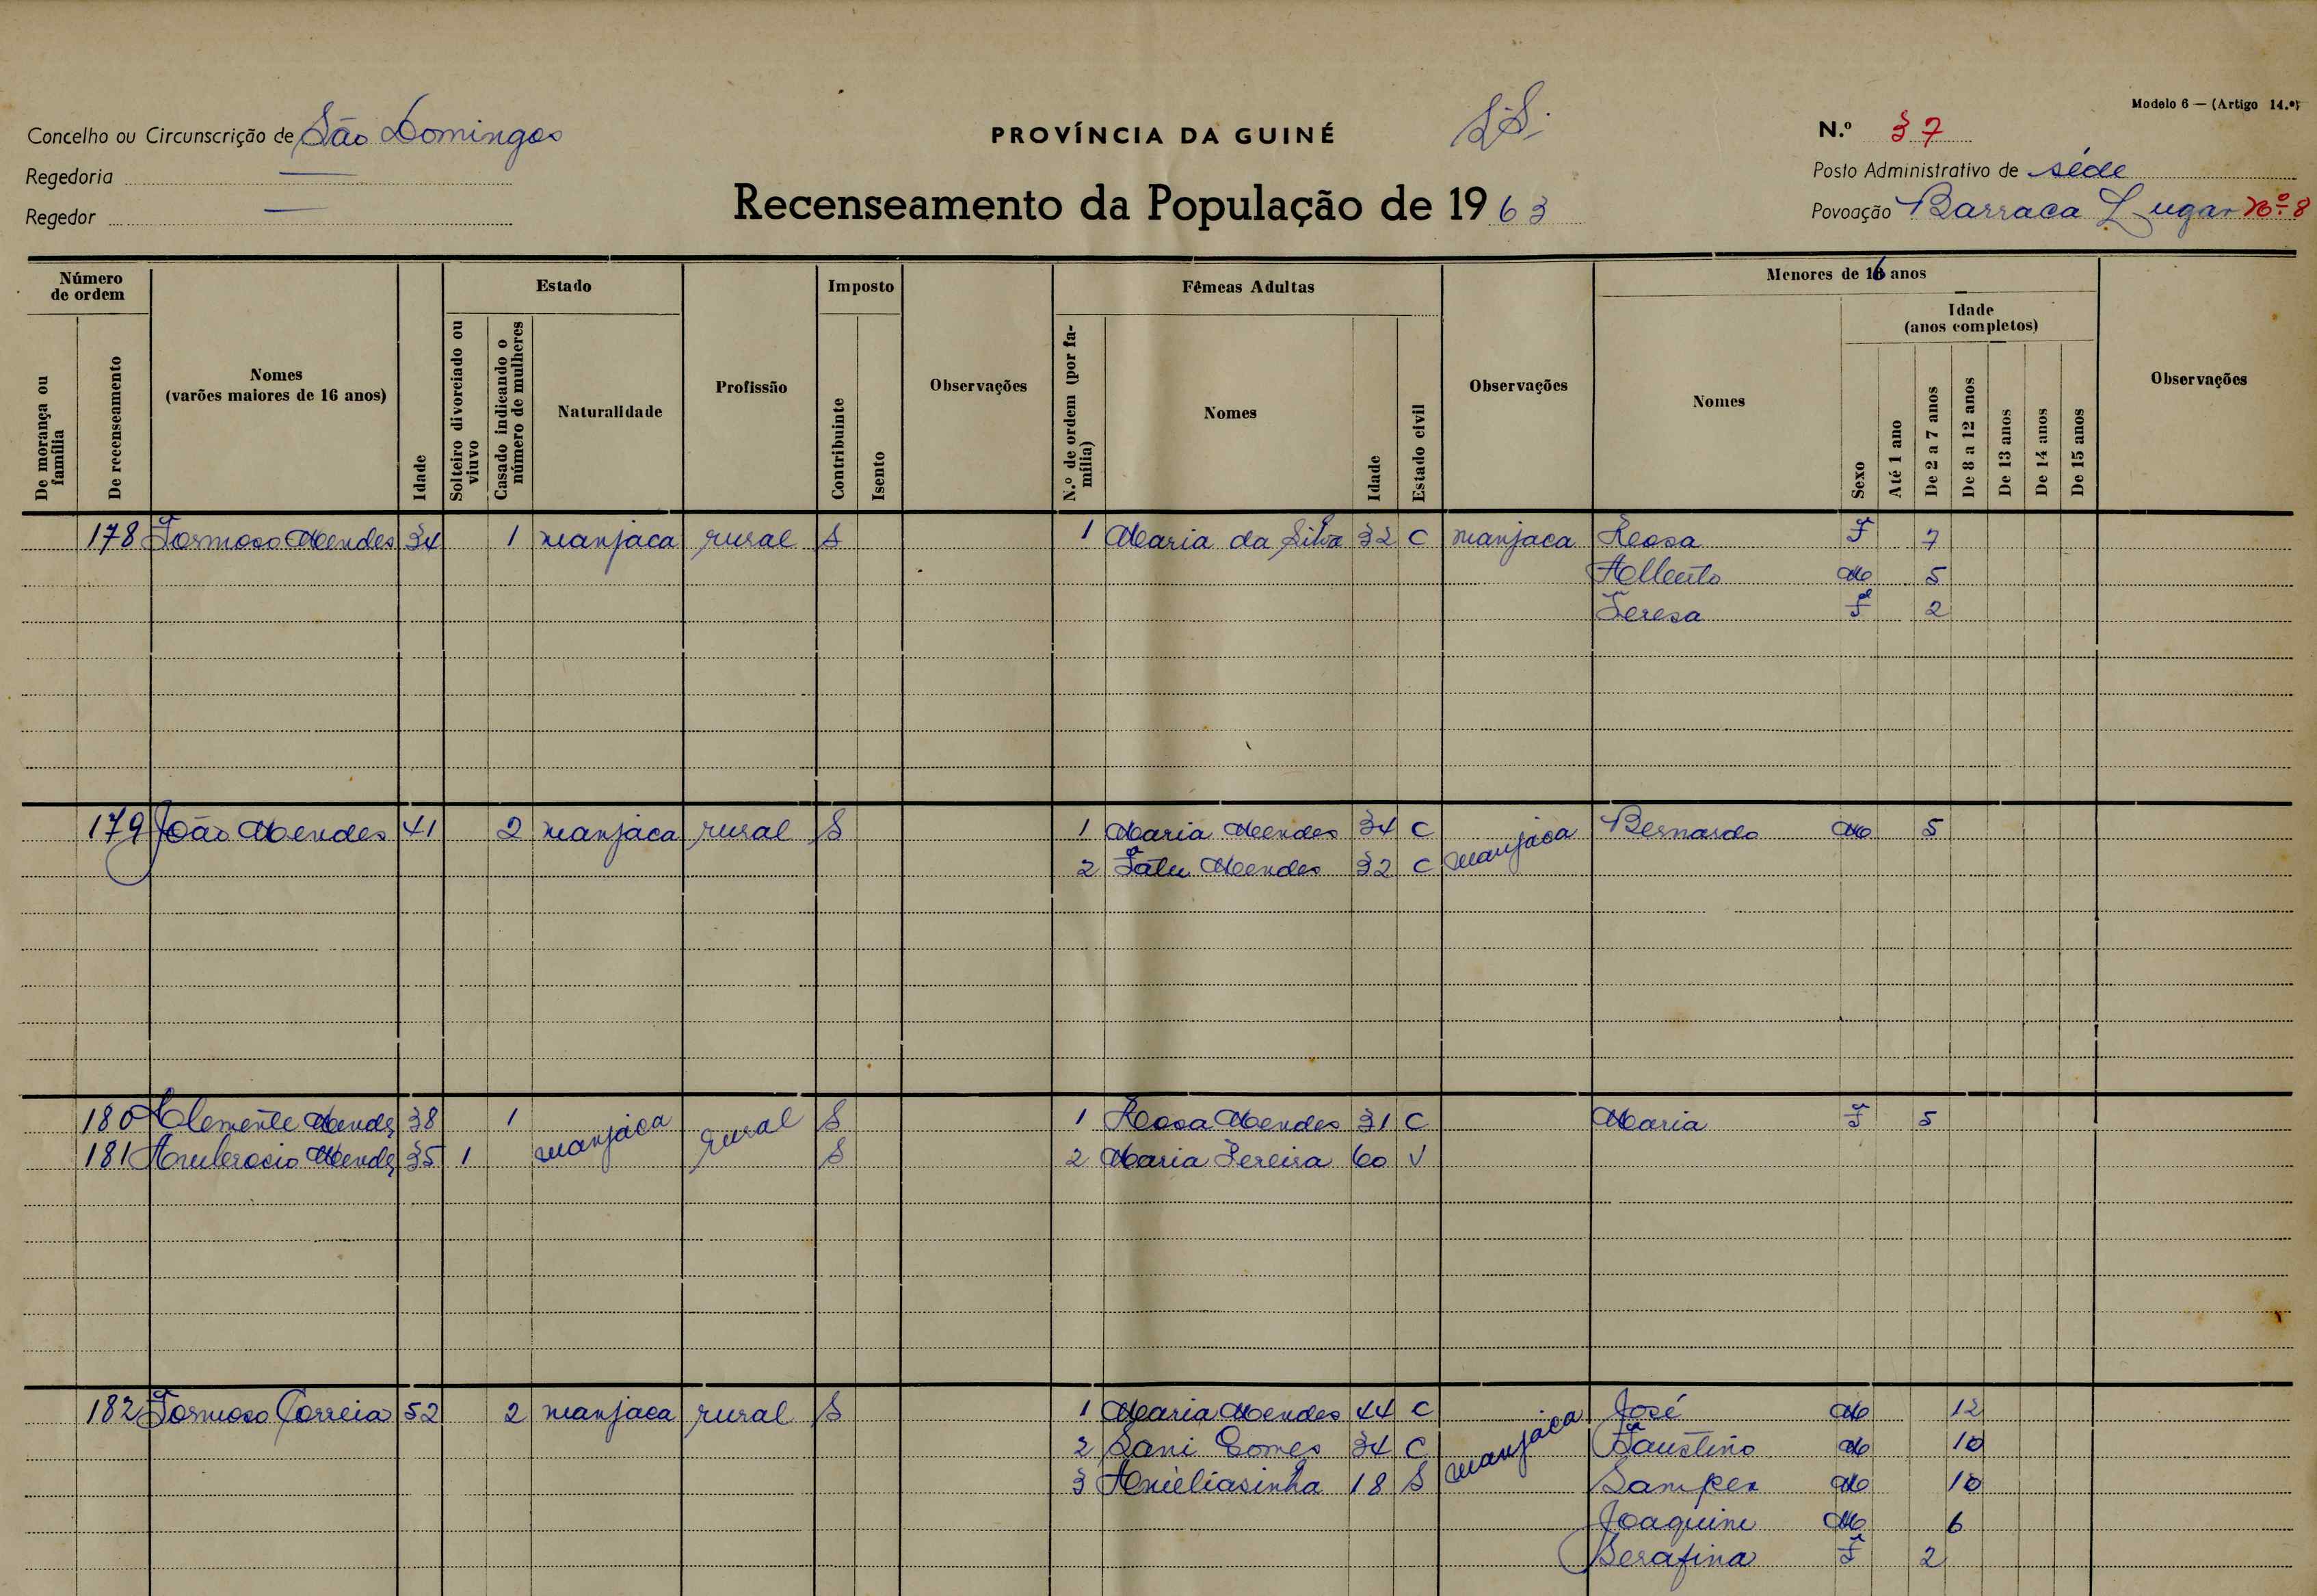 Modelo 6 — (Artigo 14.º)
Concelho ou Circunscrição de São Domingos
PROVÍNCIA DA GUINÉ
N.º 37
Regedoria —
Posto Administrativo de séde
Regedor —
Recenseamento da População de 1963
Povoação Barraca Lugar Nº 8
Número de ordem
De morança ou família
De recenseamento
Nomes (varões maiores de 16 anos)
Idade
Estado
Solteiro divorciado ou viuvo
Casado indicando o número de mulheres
Naturalidade
Profissão
Imposto
Contribuinte
Isento
Observações
Fêmeas Adultas
N.º de ordem (por família)
Nomes
Idade
Estado civil
Observações
Menores de 16 anos
Nomes
Sexo
Idade (anos completos)
Até 1 ano
De 2 a 7 anos
De 8 a 12 anos
De 13 anos
De 14 anos
De 15 anos
Observações
178 Formoso Mendes 34 1 manjaca rural S 1 Maria da Silva 32 C manjaca Rosa F 7
Alberto M 5
Teresa F 2
179 João Mendes 41 2 manjaca rural S 1 Maria Mendes 34 C manjaca Bernardo M 5
2 Fatu Mendes 32 C
180 Clemente Mendes 38 1 manjaca rural S 1 Rosa Mendes 31 C Maria F 5
181 Ambrosio Mendes 35 1 S 2 Maria Pereira 60 V
182 Formoso Correia 52 2 manjaca rural S 1 Maria Mendes 44 C manjaca José M 12
2 Sani Gomes 34 C Faustino M 10
3 18 S M 10
Joaquim M 6
Serafina F 2